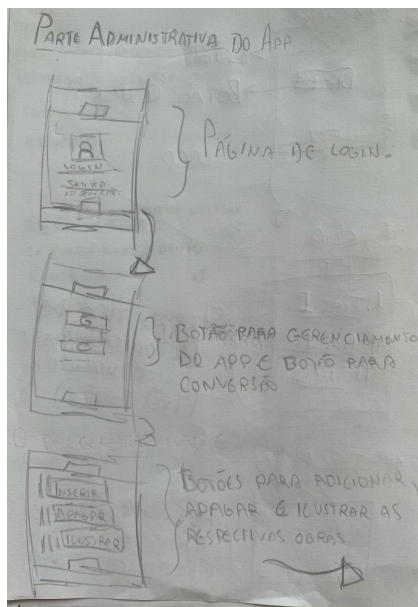 PARTE ADMINISTRATIVA DO APP
LOGIN
SENHA
PÁGINA DE LOGIN.
G
C
BOTÃO PARA GERENCIAMENTO
DO APP E BOTÃO PARA
CONVERSÃO
INSERIR
APAGAR
ILUSTRAR
BOTÕES PARA ADICIONAR,
APAGAR E ILUSTRAR AS
RESPECTIVAS OBRAS